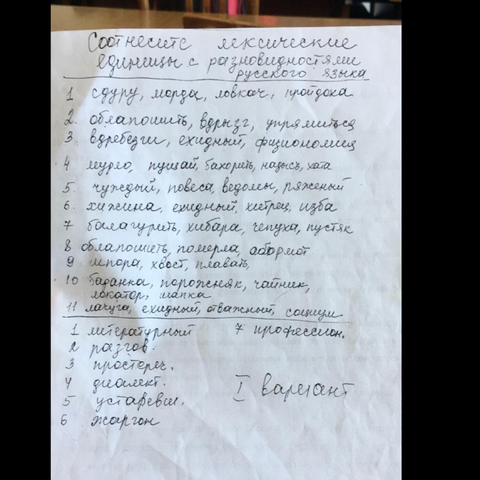 Соотнесите лексические
единицы с разновидностями
русского языка
1 сдуру, морда, ловкач, пройдоха
2. облапошить, вдрызг, упрямиться
3 вдребезги, ехидный, физиономия
4 мурло, пущай, бакорить, надысь, хата
5. чуждый, повеса, ведомы, ряженый
6. хижина, ехидный, хитрец, изба
7 балагурить, хибара, чепуха, пустяк
8 облапошить, померла, обормот
9 шпора, хвост, плавать,
10 баранка, порожняк, чайник,
локатор, шапка
11 лачуга, ехидный, отважный, социум
1 литературный 7 професcион.
2 разгов.
3 простореч.
4 диалект.
5 устаревш.
6 жаргон
I вариант